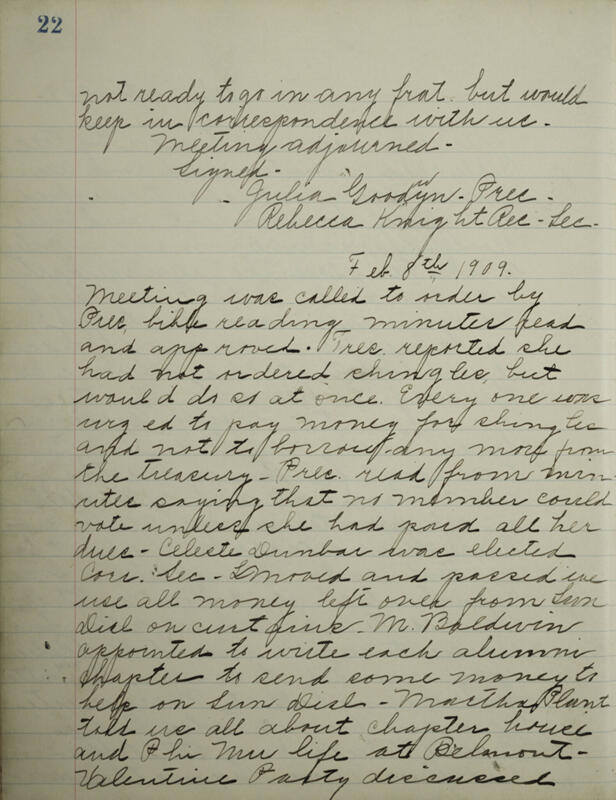 22
not ready to go in any frat. but would
keep in correspondence with us -
Meeting adjourned -
Signed -
Julia Goodyn - Pres -
Rebecca Knight Rec - Sec -
Feb. 8th 1909.
Meeting was called to order by
Pres, bible reading minutes read
and approved. Tres. reported she
had not ordered shingles, but
would do so at once. Every one was
urged to pay money for shingles
and not to borrow any more from
the treasury - Pres. read from min-
utes saying that no member could
vote unless she had paid all her
dues - Celeste Dunbar was elected
Cor. Sec - moved and passed we
use all money left over from Sun
Dial on - M. Baldwin
appointed to write each alumni
chapter to send some money to
help on Sun Dial - Martha Plant
told us all about chapter house
and Phi Mu life at Belmont -
Valentine Party discussed